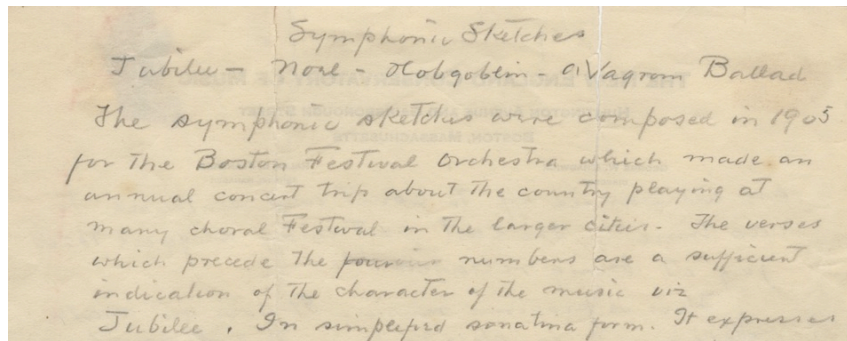 Symphonic Sketches
Jubilee - Noel - Hobgoblin - A Vagrom Ballad
The symphonic sketches were composed in 1905
for the Boston Festival Orchestra which made an
annual concert trip about the country playing at
many choral Festival in the larger cities. The verses
which precede the four numbers are a sufficient
indication of the character of the music viz
Jubilee. In simplified sonatina form. It expresses